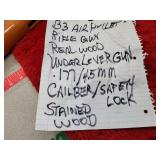 B3 AIR RIFLE
RIFLE GUN
REAL WOOD
UNDER LEVER GUN.
.177/4.5MM
CAILBER/SAFETY
LOCK
STAINED
WOOD